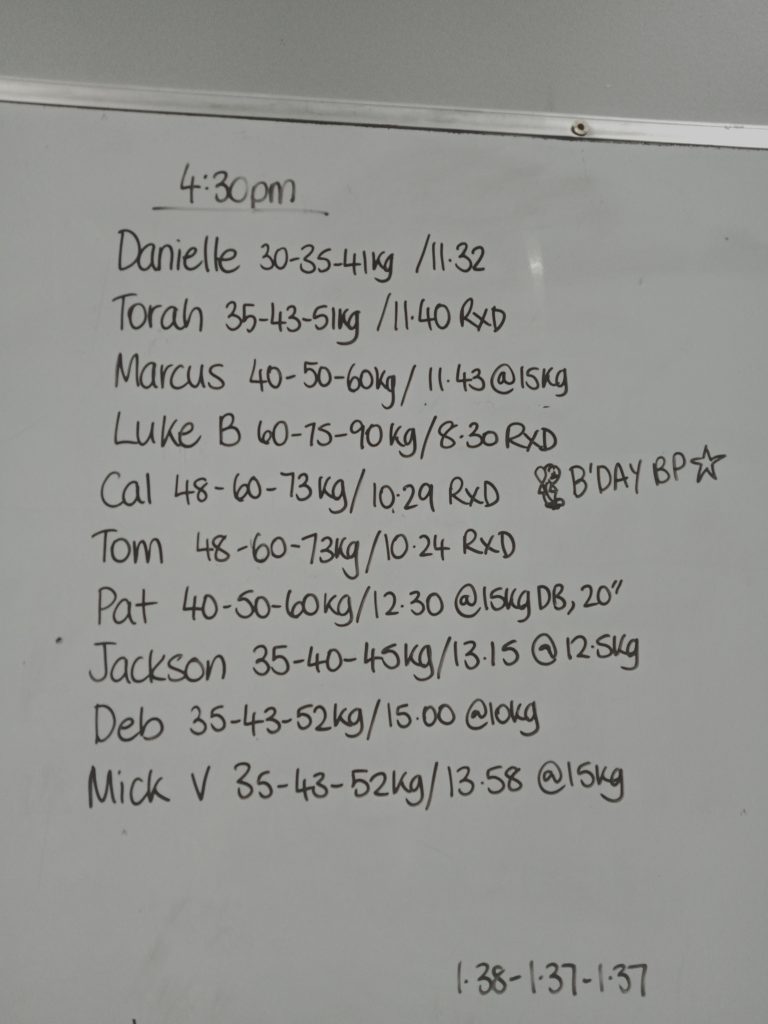 4:30pm
Danielle 30-35-41kg /11.32
Torah 35-43-51kg /11.40 RxD
Marcus 40-50-60kg/ 11.43 @15kg
Luke B 60-75-90kg/8.30 RxD
Cal 48-60-73kg/10.29 RxD B'DAY BP☆
Tom 48-60-73kg/10.24 RxD
Pat 40-50-60kg/12.30 @15kg DB, 20"
Jackson 35-40-45kg/13.15 @12.5kg
Deb 35-43-52kg/15.00 @10kg
Mick V 35-43-52kg/13.58 @15kg
1.38-1.37-1.37